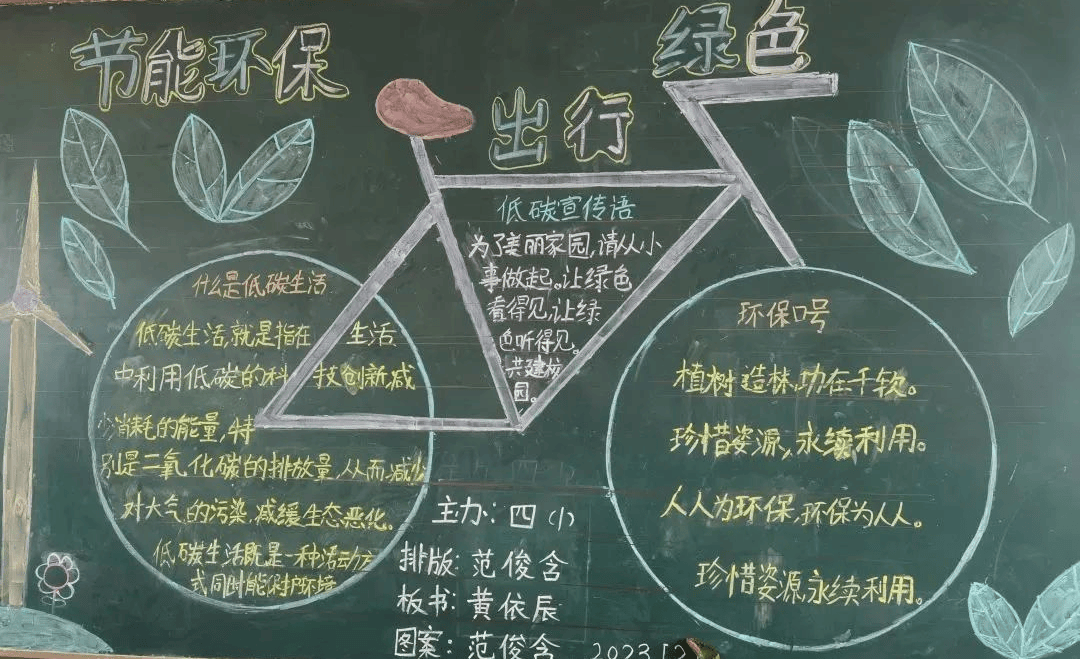 节能环保
绿色
出行
低碳宣传语
为了美丽家园,请从小
事做起。让绿色
看得见,让绿
色听得见。
共建校
园。
什么是低碳生活
低碳生活,就是指在 生活
中利用低碳的科 技创新减
少消耗的能量,特
别是二氧化碳的排放量,从而减少
对大气的污染,减缓生态恶化。
低碳生活既是一种活动方
式同时能保护环境
环保口号
植树造林,功在千秋。
珍惜姿源,永续利用。
人人为环保,环保为人人。
珍惜姿源,永续利用。
主办:四(1)
排版:范俊含
板书:黄依辰
图案:范俊含 2023.12